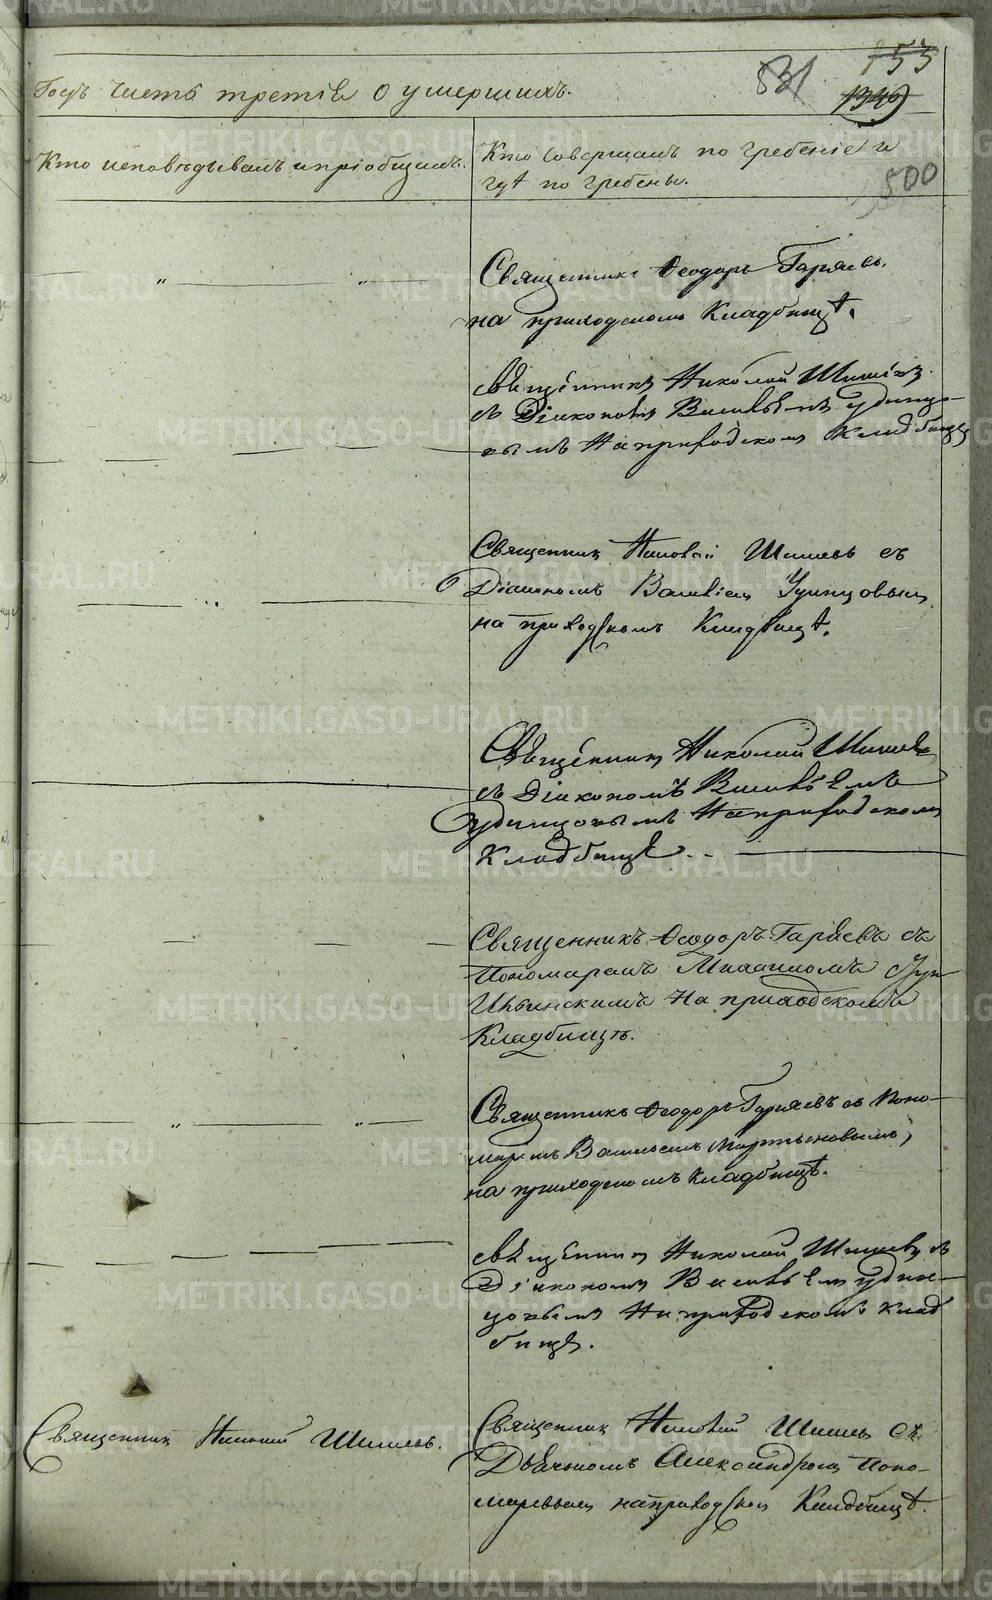 Годъ часть третія о умершихъ.
531
753
1346
Кто исповѣдывалъ и пріобщалъ.
Кто совершалъ погребеніе и
гдѣ погребены.
500
Священникъ Ѳеодоръ Гаряевъ.
на приходскомъ Кладбищѣ.
Священникъ Николай Шишевъ
съ Діакономъ Василіемъ Удинцо-
вымъ На приходскомъ Кладбище
Священник Николай Шишевъ съ
Діакономъ Василіем Удинцовым
на приходскомъ Кладбищѣ.
Священник Николай Шишевъ
съ Діакономъ Василіемъ
Удинцовымъ На приходском
Кладбище
Священникъ Ѳеодоръ Гаряевъ съ
Пономаремъ
на приходскомъ
Кладбищѣ.
Священникъ Ѳеодоръ Гаряевъ съ Поно-
маремъ Василіемъ Мартыновымъ,
на приходскомъ кладбищѣ.
Священник Николай Шишевъ съ
Діаконом Василіем Удин-
цовым На приходскомъ Клад
бище.
Священник Николай Шишевъ.
Священник Николай Шишевъ съ
Дьячкомъ Александром Поно-
маревым на приходском Кладбищѣ.
METRIKI.GASO-URAL.RU